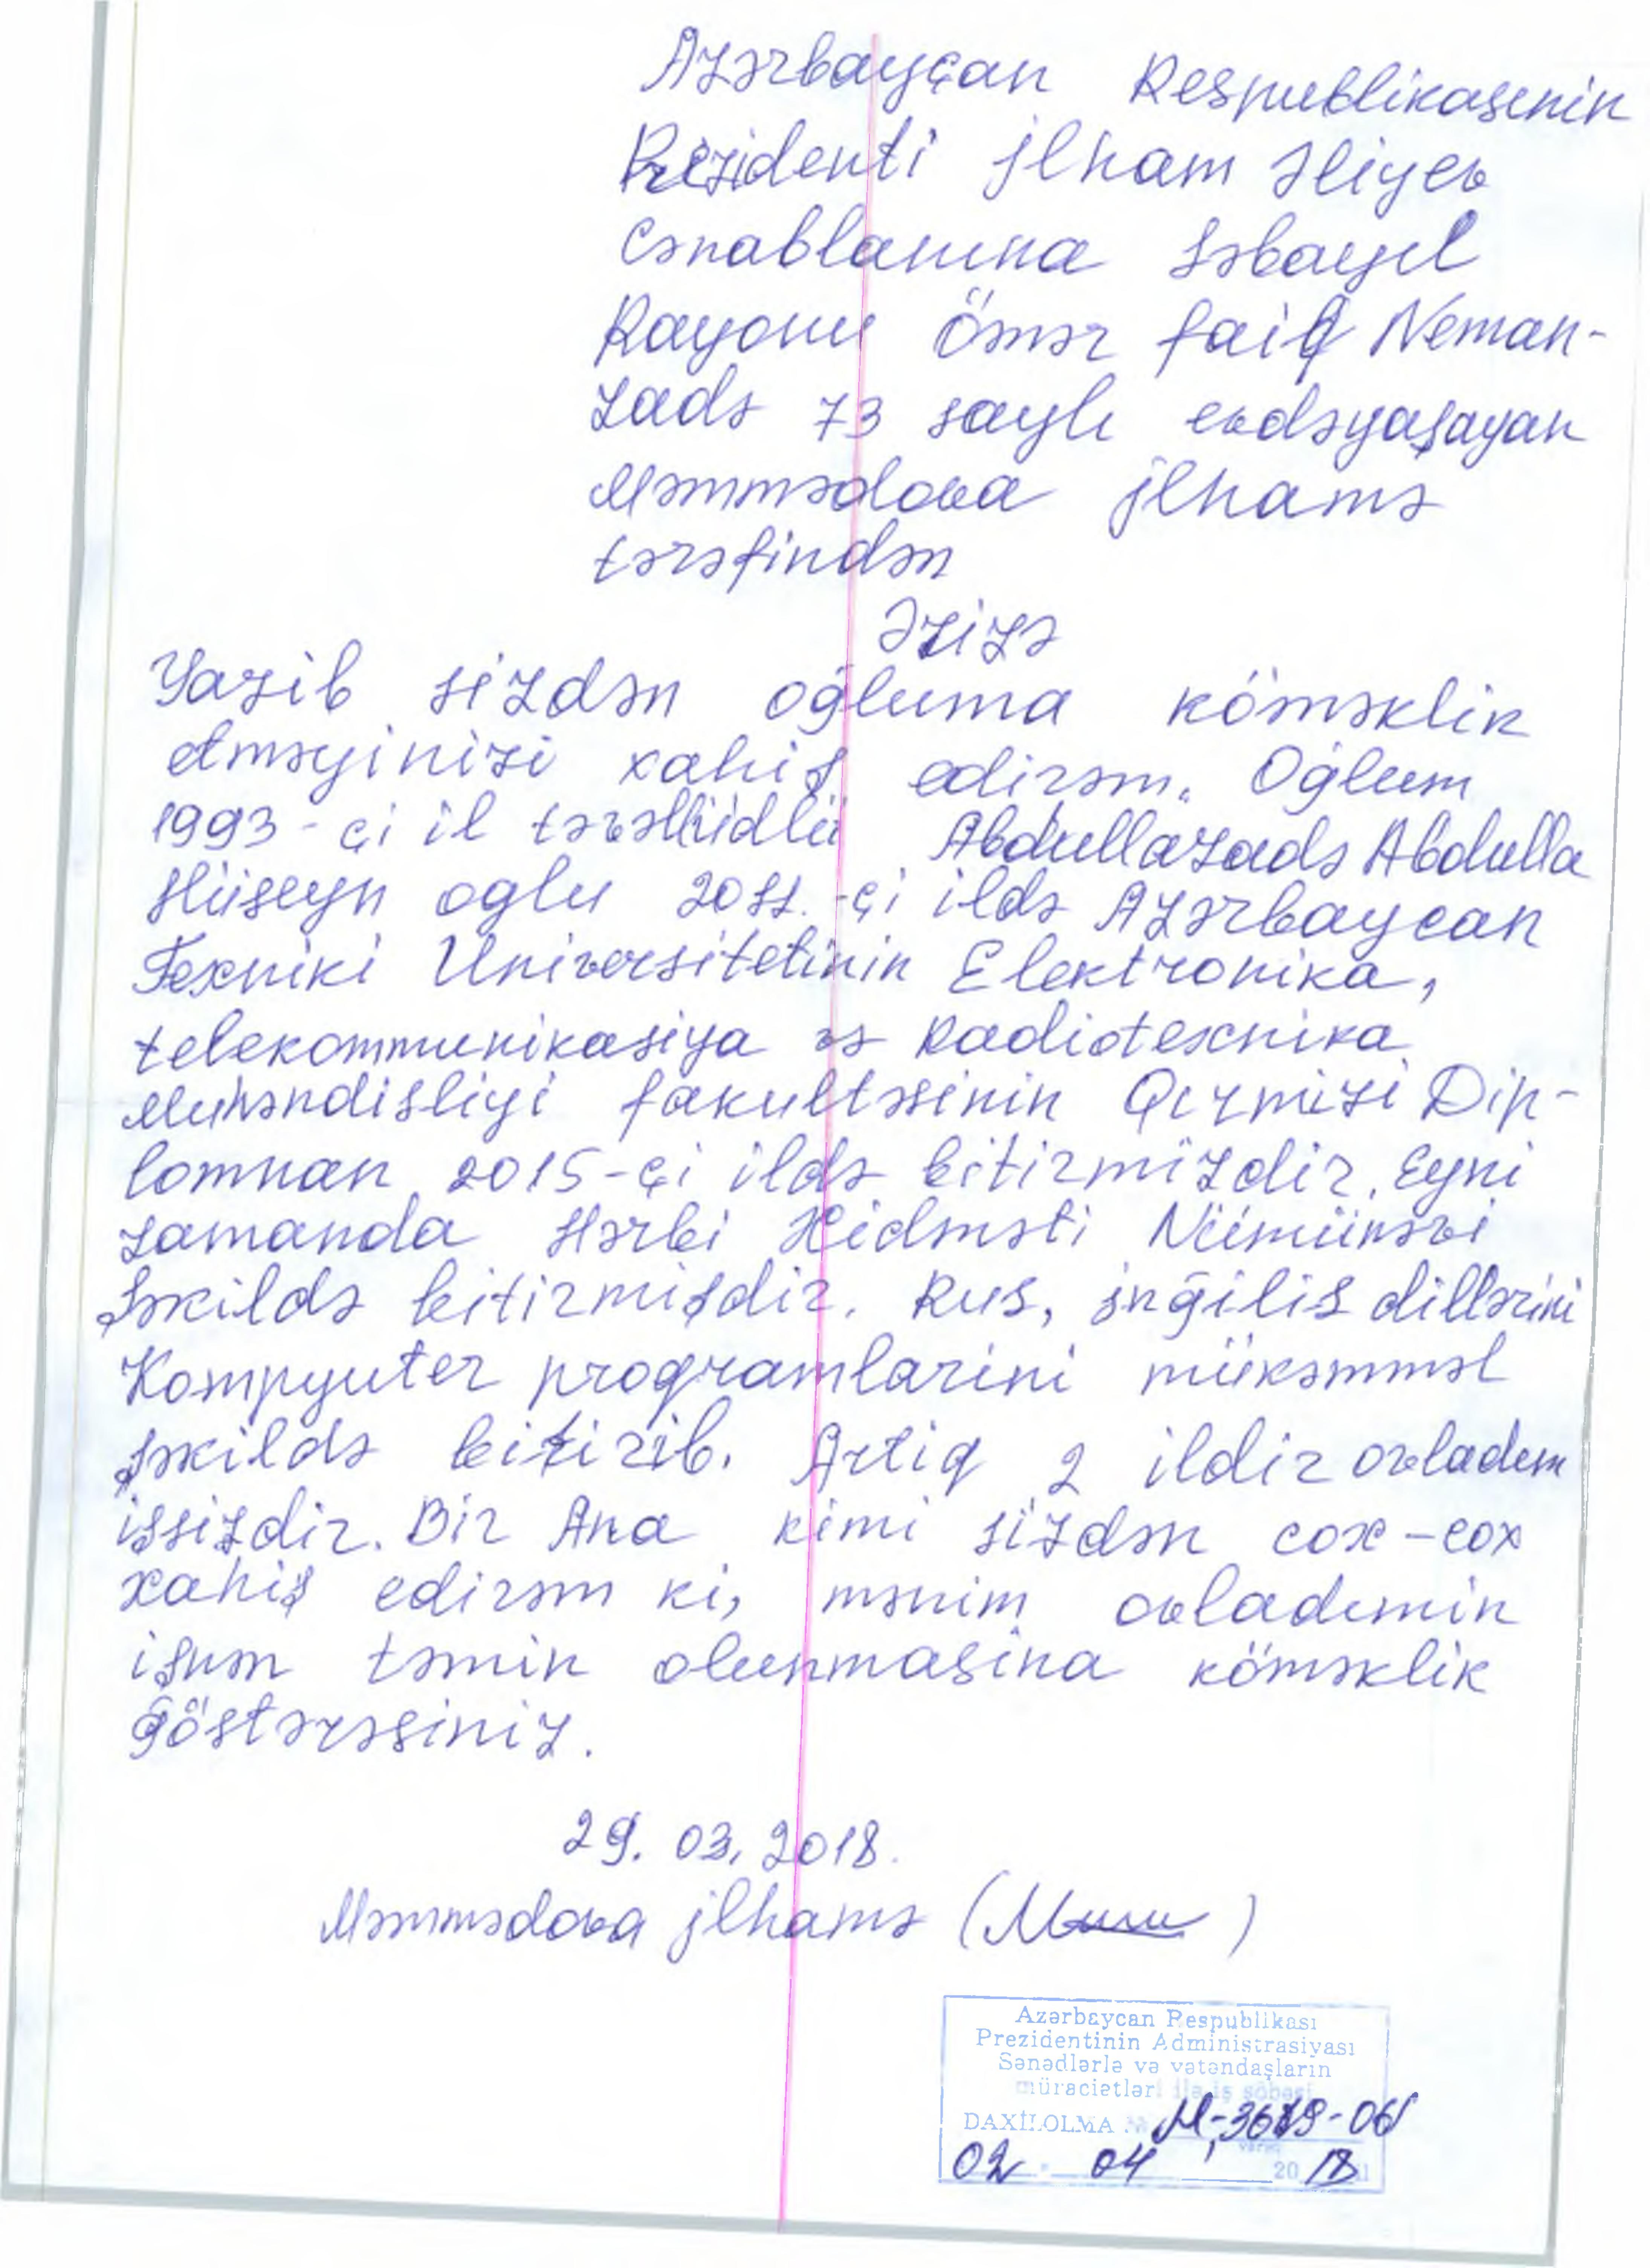 Azərbayçan Respublikasının
Prezidenti ilham Əliyev
Cənablarına Səbayıl
Rayonu Ömər faiq Neman-
zadə 73 saylı evdəyaşayan
Məmmədova ilhamə
tərəfindən
Əzizə
Yazib sizdən oğluma köməklik
etməyinizi xahiş edirəm. Oğlum
1993-çi il təvəllüdlü Abdullazadə Abdulla
Hüseyn oglu 2011.-çi ildə Azərbaycan
Texniki Universitetinin Elektronika,
telekommunikasiya və Radiotexnika
Muhəndisliyi fakultəsinin Qızmızi Dip-
lomnan 2015-çi ildə bitirmizdir. Eyni
zamanda Hərbi Xidməti Nümünəvi
Şəkildə bitirmişdir. Rus, ingilis dillərini
Kompyuter programlarini mükəmməl
şəkildə bitirib. Artiq 2 ildir ovladım
işsizdir. Bir Ana kimi sizdən cox-cox
xahiş edirəm ki, mənim ovladımin
işnən təmin olunmasina köməklik
göstərəsiniz.
29.03.2018.
Məmmədova ilhamə ( )
Azərbaycan Respublikası
Prezidentinin Administrasiyası
Sənədlərlə və vətəndaşların
müraciətləri ilə iş şöbəsi
DAXİLOLMA №
02 04 2018 il